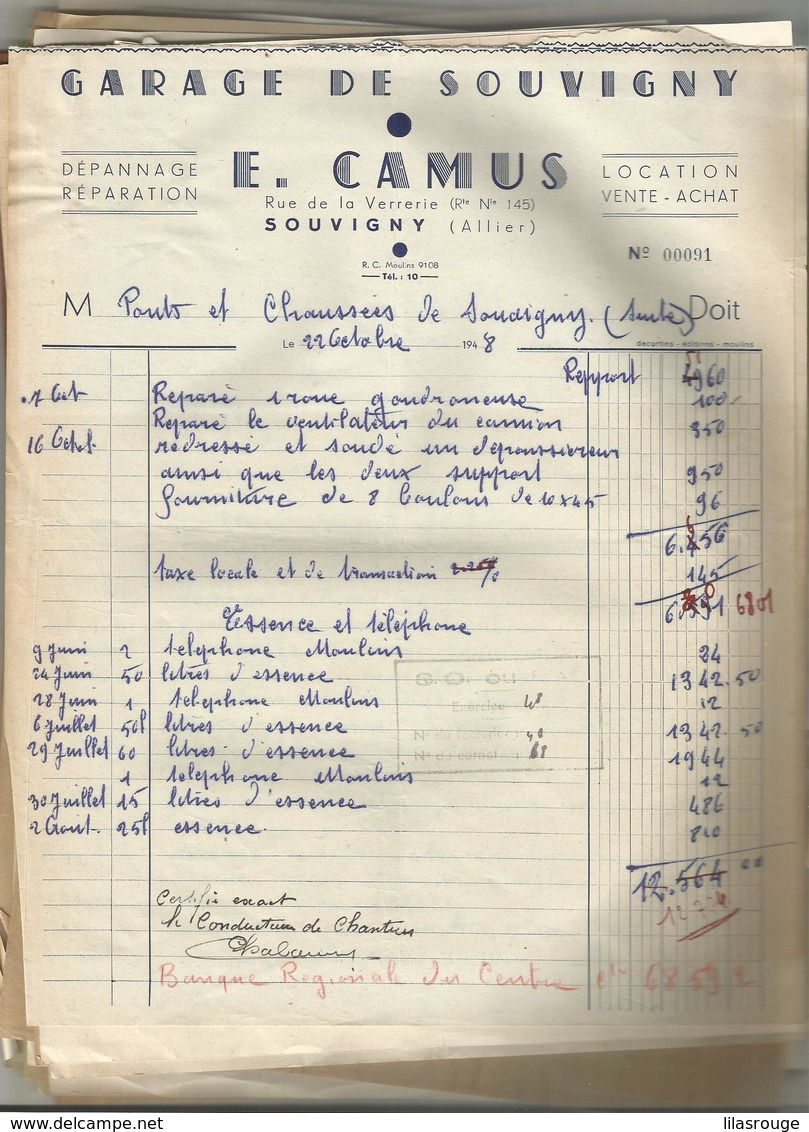 GARAGE DE SOUVIGNY
DÉPANNAGE
RÉPARATION
E. CAMUS
LOCATION
VENTE - ACHAT
Rue de la Verrerie (Rte Nle 145)
SOUVIGNY (Allier)
No 00091
R. C. Moulins 9108
Tél. : 10
M Ponts et Chaussées de Souvigny. (suite) Doit
Le 22 Octobre 1948
decurtins - éditions - moulins
Repport 4960
7 Oct Reparé 1 roue goudroneuse 100
Reparé le ventilateur du camion 350
16 Octob. redressé et soudé un dépoussiereur
ainsi que les deux support 950
fourniture de 8 boulons de 10x45 96
6.656
taxe locale et de transaction 145
6801
Essence et téléphone
9 Juin 2 telephone Moulins 24
24 Juin 50 litres d'essence 1342.50
28 Juin 1 telephone Moulins 12
6 Juillet 50l litres d'essence 1342.50
29 Juillet 60 litres d'essence 1944
1 telephone Moulins 12
30 Juillet 15 litres d'essence 486
2 Aout. 25l essence. 810
Exercice 48
N° du
N° du carnet : 68
12.564 00
12774
Certifié exact
le Conducteur de Chantier
Banque Regionale du Centre cte 6859
delcampe.net
lilasrouge